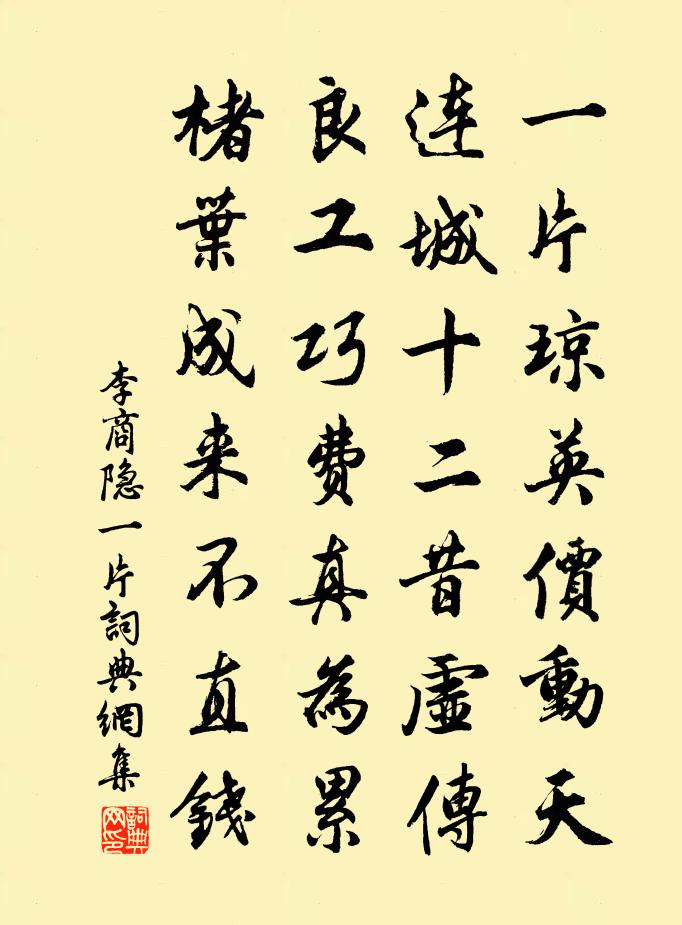 一片琼英價動天
連城十二昔虛傳
良工巧費真為累
楮葉成来不直錢
李商隐一片詞典網集
詞典网印